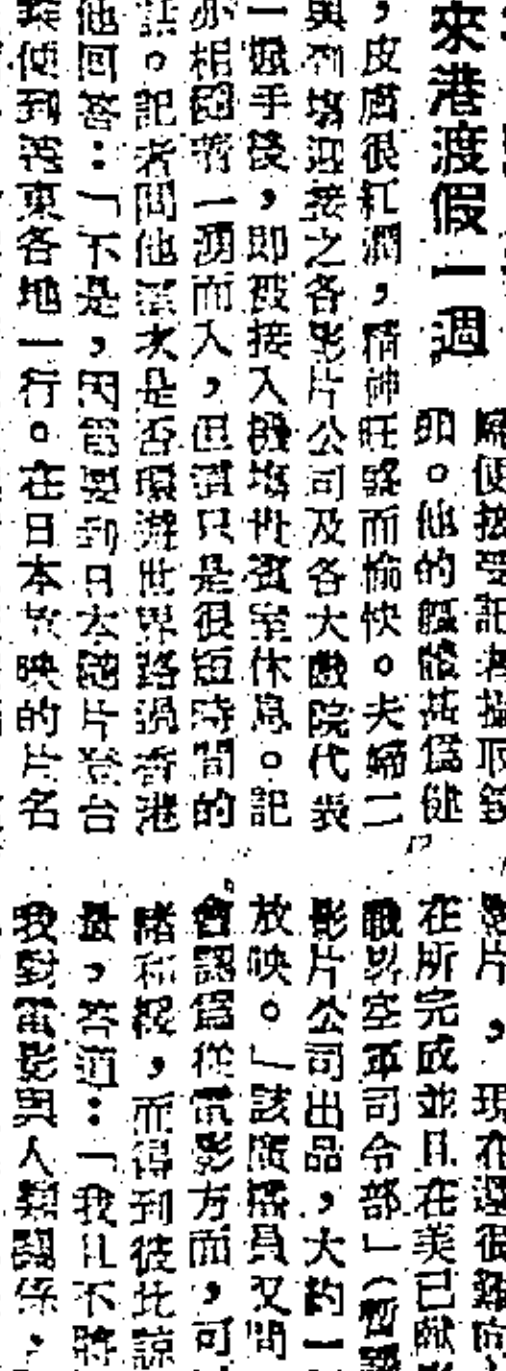 來港渡假一週
隨便接受記者攝取鏡
頭。他的體態甚為健
，皮膚很紅潤，精神旺盛而愉快。夫婦二
與到場迎接之各影片公司及各大戲院代表
一握手後，即被接入機場貴賓室休息。記
亦相隨着一湧而入，但這只是很短時間的
話。記者問他這次是否環遊世界路過香港
他回答：「不是，因為要到日本隨片登台
便到遠東各地一行。在日本放映的片名
影片，現在還很難
在所完成並且在美已獻
戰畧空軍司令部」（暫
影片公司出品，大約一
放映。」該廣播員又問
會認為從電影方面，可
諸和段，而得到彼此諒
，答道：「我且不將
我對電影與人類關係，